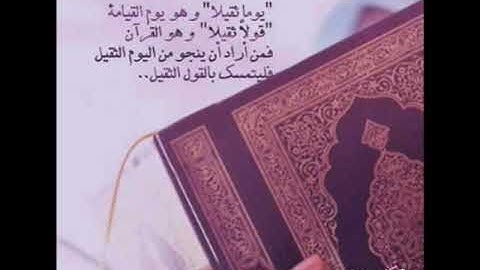 "يوما ثقيلا" و هو يوم القيامة
"قولاً ثقيلا" و هو القرآن
فمن أراد أن ينجو من اليوم الثقيل
فليتمسك بالقول الثقيل..